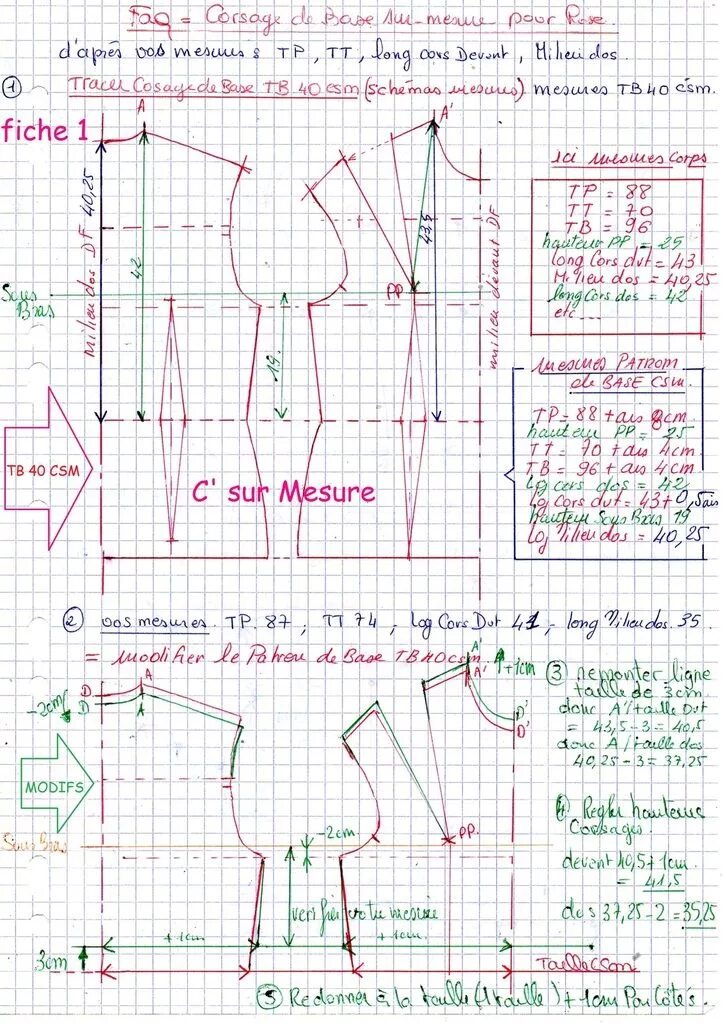 FAQ = Corsage de Base sur-mesure pour Rose.
d'après vos mesures TP, TT, long cors Devant, Milieu dos.
① Tracer Cosage de Base TB 40 csm (schémas mesures) mesures TB 40 csm.
fiche 1
A
A'
ici mesures corps
TP = 88
TT = 70
TB = 96
hauteur PP = 25
long Cors dvt = 43
Milieu dos = 40,25
long Cors dos = 42
etc...
milieu dos DF 40,25
42
43,5
milieu devant DF
Sous Bras
PP
19
mesures PATROM
de BASE CSM.
TP = 88 + ais 8cm
hauteur PP = 25
TT = 70 + ais 4cm
TB = 96 + ais 4cm
Lg cors dos = 42
Lg Cors dvt = 43 + 0,5 ais
hauteur Sous Bras 19
Lg Milieu dos = 40,25
TB 40 CSM
C' sur Mesure
② vos mesures. TP. 87, TT 74, Log Cors Dvt 41, long Milieu dos. 35
= modifier le Patron de Base TB 40 csm.
A
A
D
D
-2cm
A'
A'
+1cm
D'
D'
③ remonter ligne
taille de 3cm.
donc A'/taille Dvt
= 43,5 - 3 = 40,5
donc A/taille dos
40,25 - 3 = 37,25
MODIFS
Sous Bras
-2cm
PP.
④ Regler hauteurs
Corsages.
devant 40,5 + 1cm
= 41,5
dos 37,25 - 2 = 35,25
verifier votre mesure
+1cm
+1cm
3cm
Taille CSM
⑤ Redonner à la taille (1 taille) + 1cm Par Côtés.